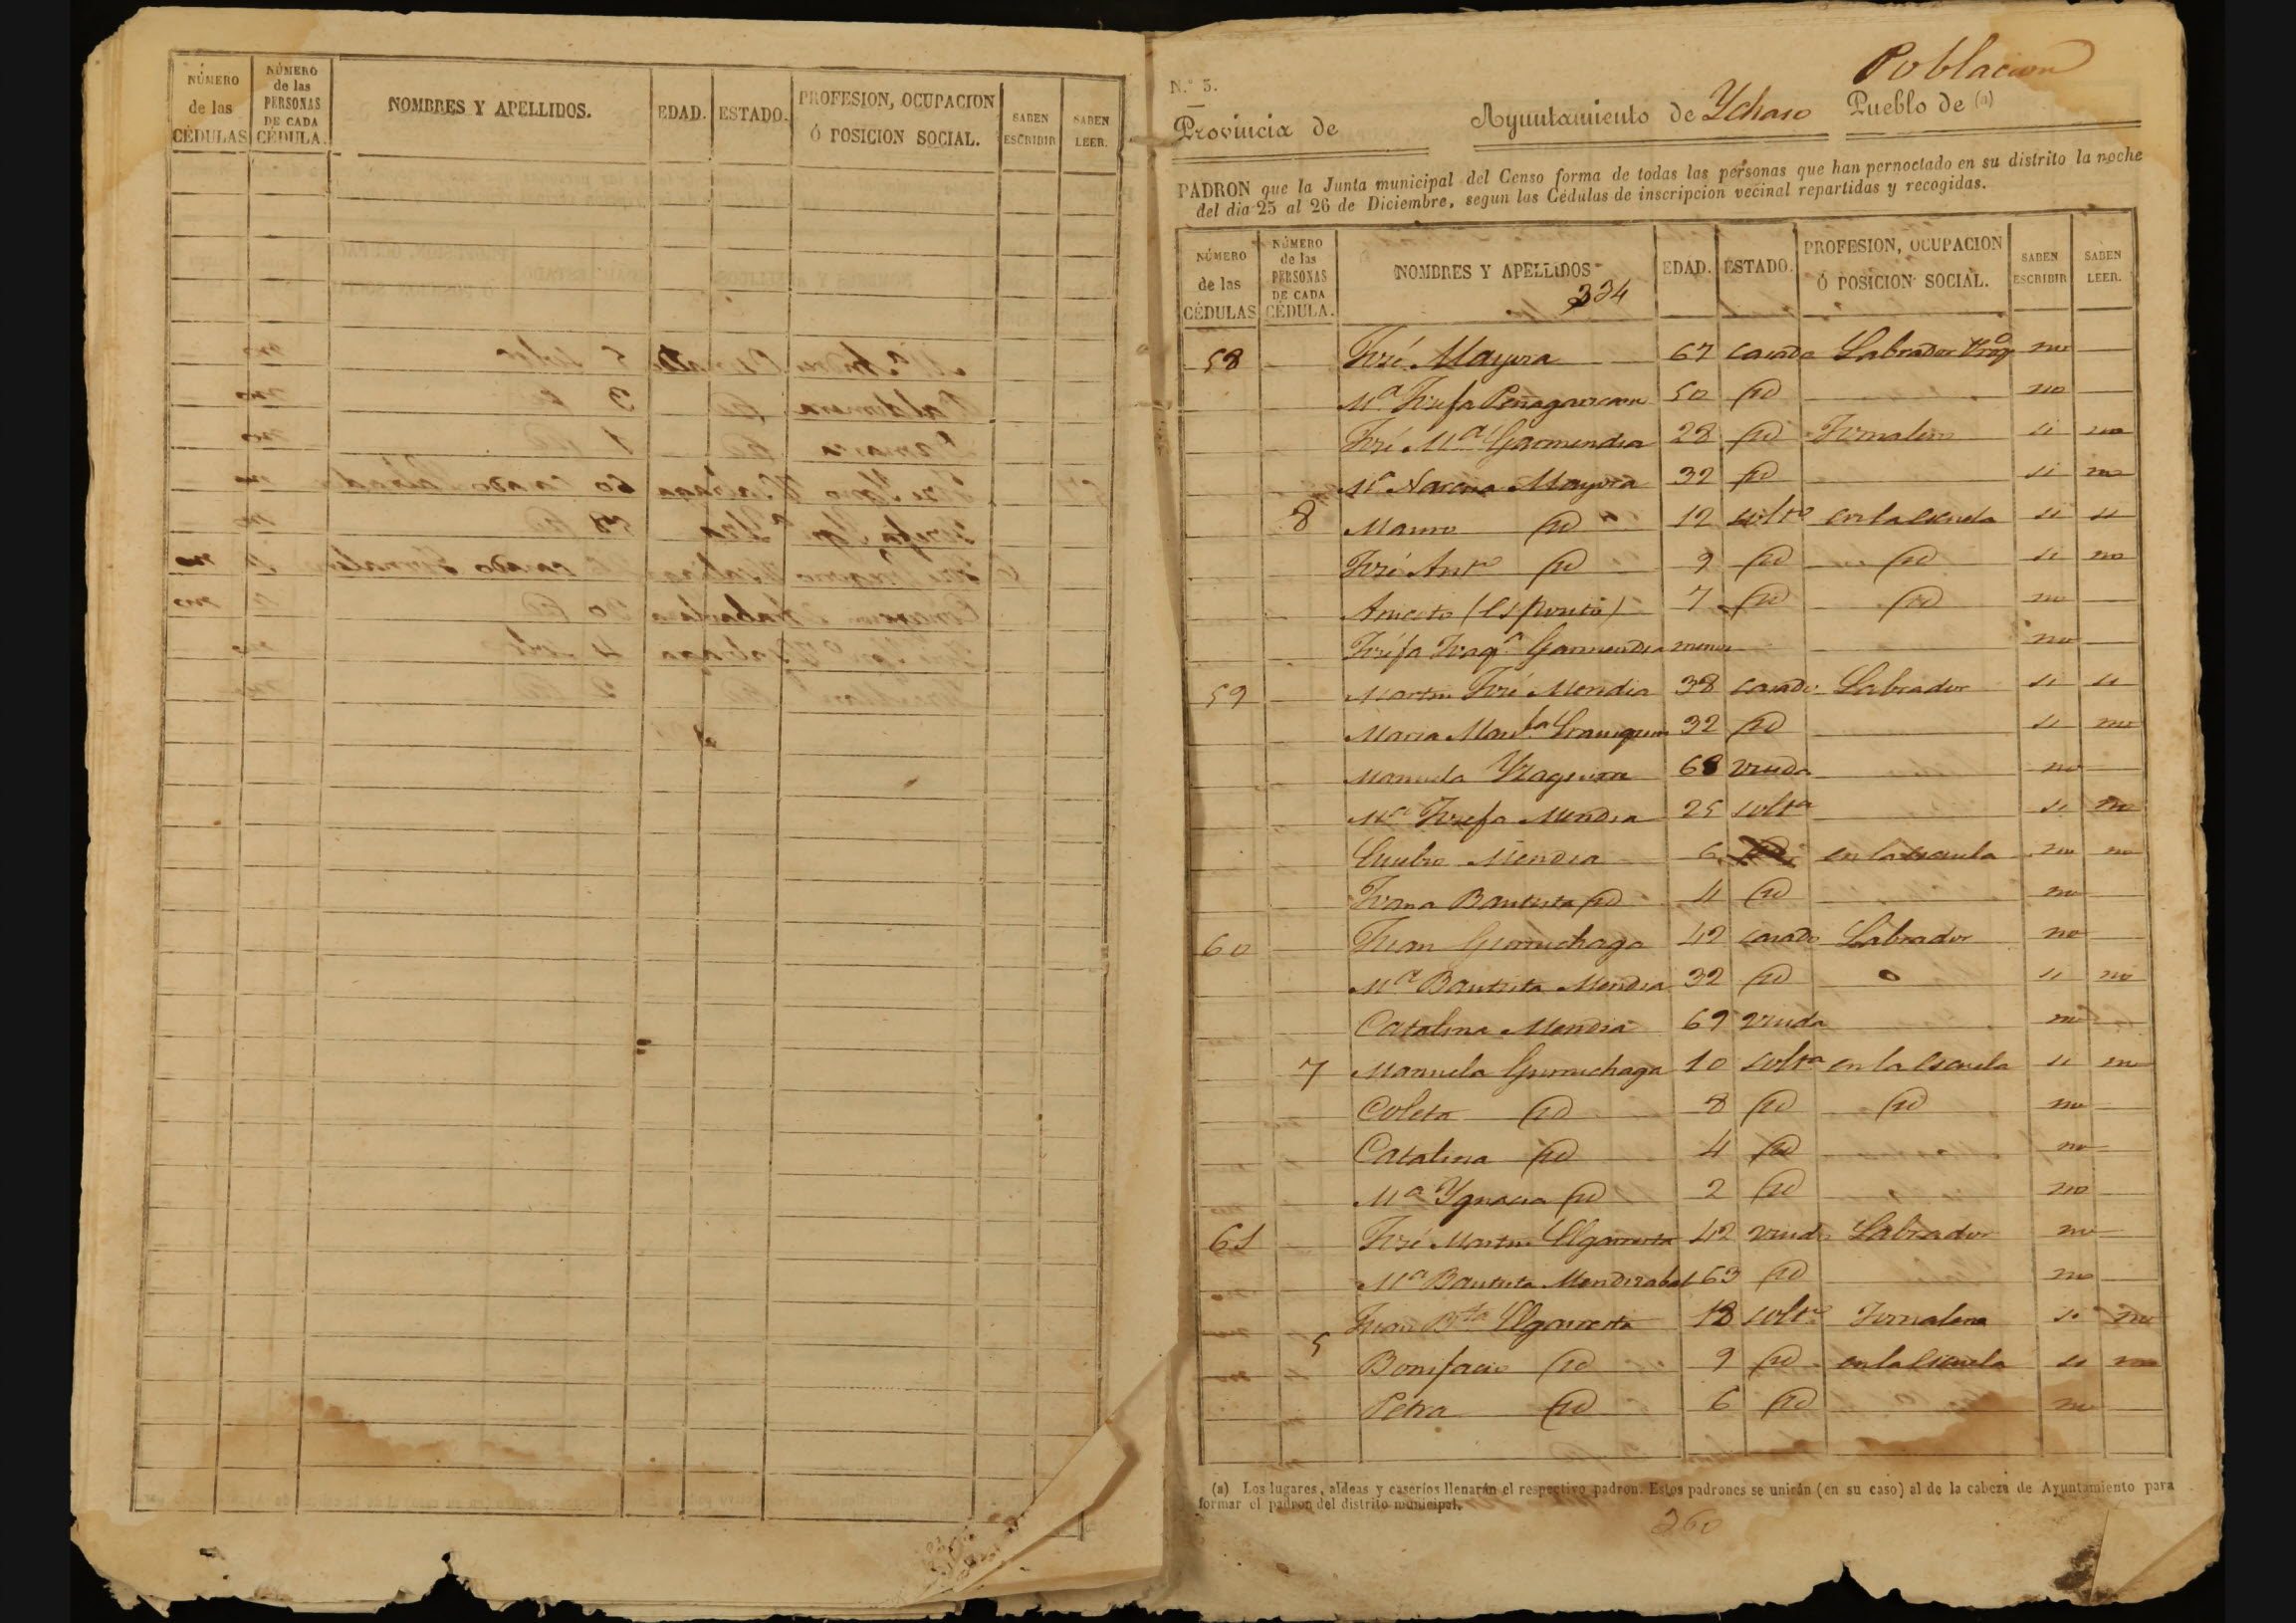 NÚMERO de las CÉDULAS
NÚMERO de las PERSONAS DE CADA CÉDULA.
NOMBRES Y APELLIDOS.
EDAD.
ESTADO.
PROFESION, OCUPACION Ó POSICION SOCIAL.
SABEN ESCRIBIR
SABEN LEER.
Poblacion
N.º 3.
Provincia de
Ayuntamiento de Ychaso
Pueblo de (a)
PADRON que la Junta municipal del Censo forma de todas las personas que han pernoctado en su distrito la noche
del dia 25 al 26 de Diciembre, segun las Cédulas de inscripcion vecinal repartidas y recogidas.
NÚMERO de las CÉDULAS
NÚMERO de las PERSONAS DE CADA CÉDULA.
NOMBRES Y APELLIDOS
334
EDAD.
ESTADO.
PROFESION, OCUPACION Ó POSICION SOCIAL.
SABEN ESCRIBIR
SABEN LEER.
58 José Mayora 67 casado Labrador no
M.ª Josefa Peñagaricano 50 id no
José M.ª Garmendia 28 id Jornalero si no
M.ª Mayora 32 id si no
8 id 12 solt.º en la escuela si si
José Ant.º id 9 id id si no
Aniceto (Esposito) 7 id id no
Josefa Joaq.ª Garmendia menor no
59 Martin José Mendia 38 casado Labrador si si
Maria 32 id si no
Manuela 68 viuda no
M.ª Josefa Mendia 25 solt.ª si no
Eusebio Mendia 6 en la escuela no no
Juana Bautista id 4 id no
60 Juan Gurruchaga 42 casado Labrador no
M.ª Bautista Mendia 32 id si no
Catalina Mendia 69 viuda no
7 Manuela Gurruchaga 10 solt.ª en la escuela si no
Coleta id 8 id id no
Catalina id 4 id no
M.ª Ygnacia id 2 id no
61 José Martin Elgarresta 42 viudo Labrador no
M.ª Bautista Mendizabal 63 id no
Juan B.ta Elgarresta 18 solt.º Jornalero si no
5 Bonifacio id 9 id en la escuela si no
Petra id 6 id no
(a) Los lugares, aldeas y caseríos llenarán el respectivo padron. Estos padrones se unirán (en su caso) al de la cabeza de Ayuntamiento para
formar el padron del distrito municipal.
260